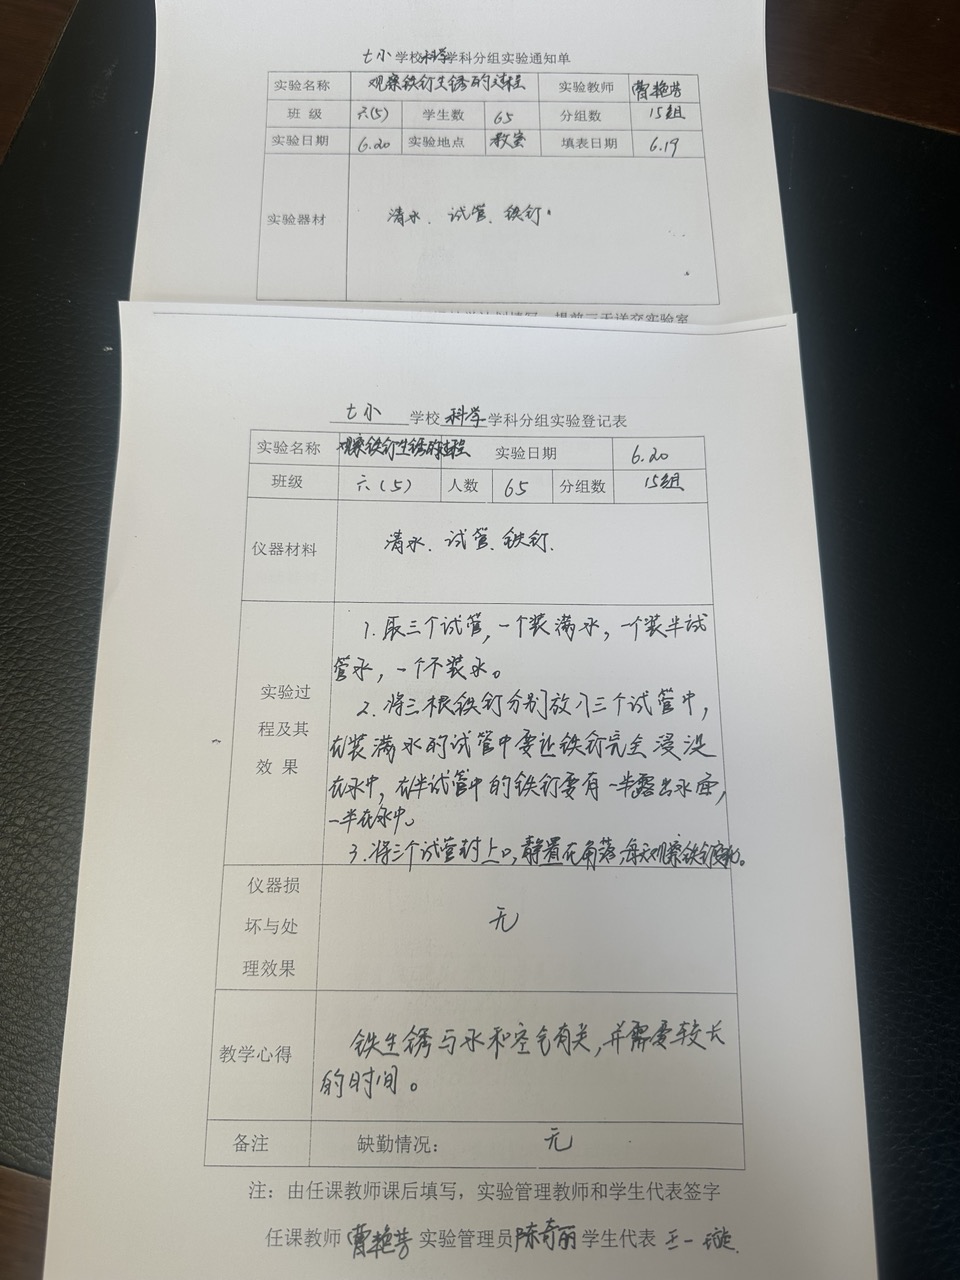 七小学校科学学科分组实验通知单
实验名称 观察铁钉生锈的过程 实验教师 曹艳芳
班 级 六(5) 学生数 65 分组数 15组
实验日期 6.20 实验地点 教室 填表日期 6.19
实验器材 清水、试管、铁钉。
提前三天送交实验室
七小 学校 科学 学科分组实验登记表
实验名称 观察铁钉生锈的过程 实验日期 6.20
班级 六(5) 人数 65 分组数 15组
仪器材料 清水、试管、铁钉.
实验过
程及其
效 果
1. 取三个试管,一个装满水,一个装半试
管水,一个不装水。
2. 将三根铁钉分别放入三个试管中,
在装满水的试管中要让铁钉完全浸没
在水中,在半试管中的铁钉要有一半露出水面,
一半在水中。
3. 将三个试管封上口,静置在角落,每天观察铁钉变化。
仪器损
坏与处
理效果
无
教学心得
铁生锈与水和空气有关,并需要较长
的时间。
备注 缺勤情况: 无
注:由任课教师课后填写,实验管理教师和学生代表签字
任课教师 曹艳芳 实验管理员 陈奇丽 学生代表 王一璇